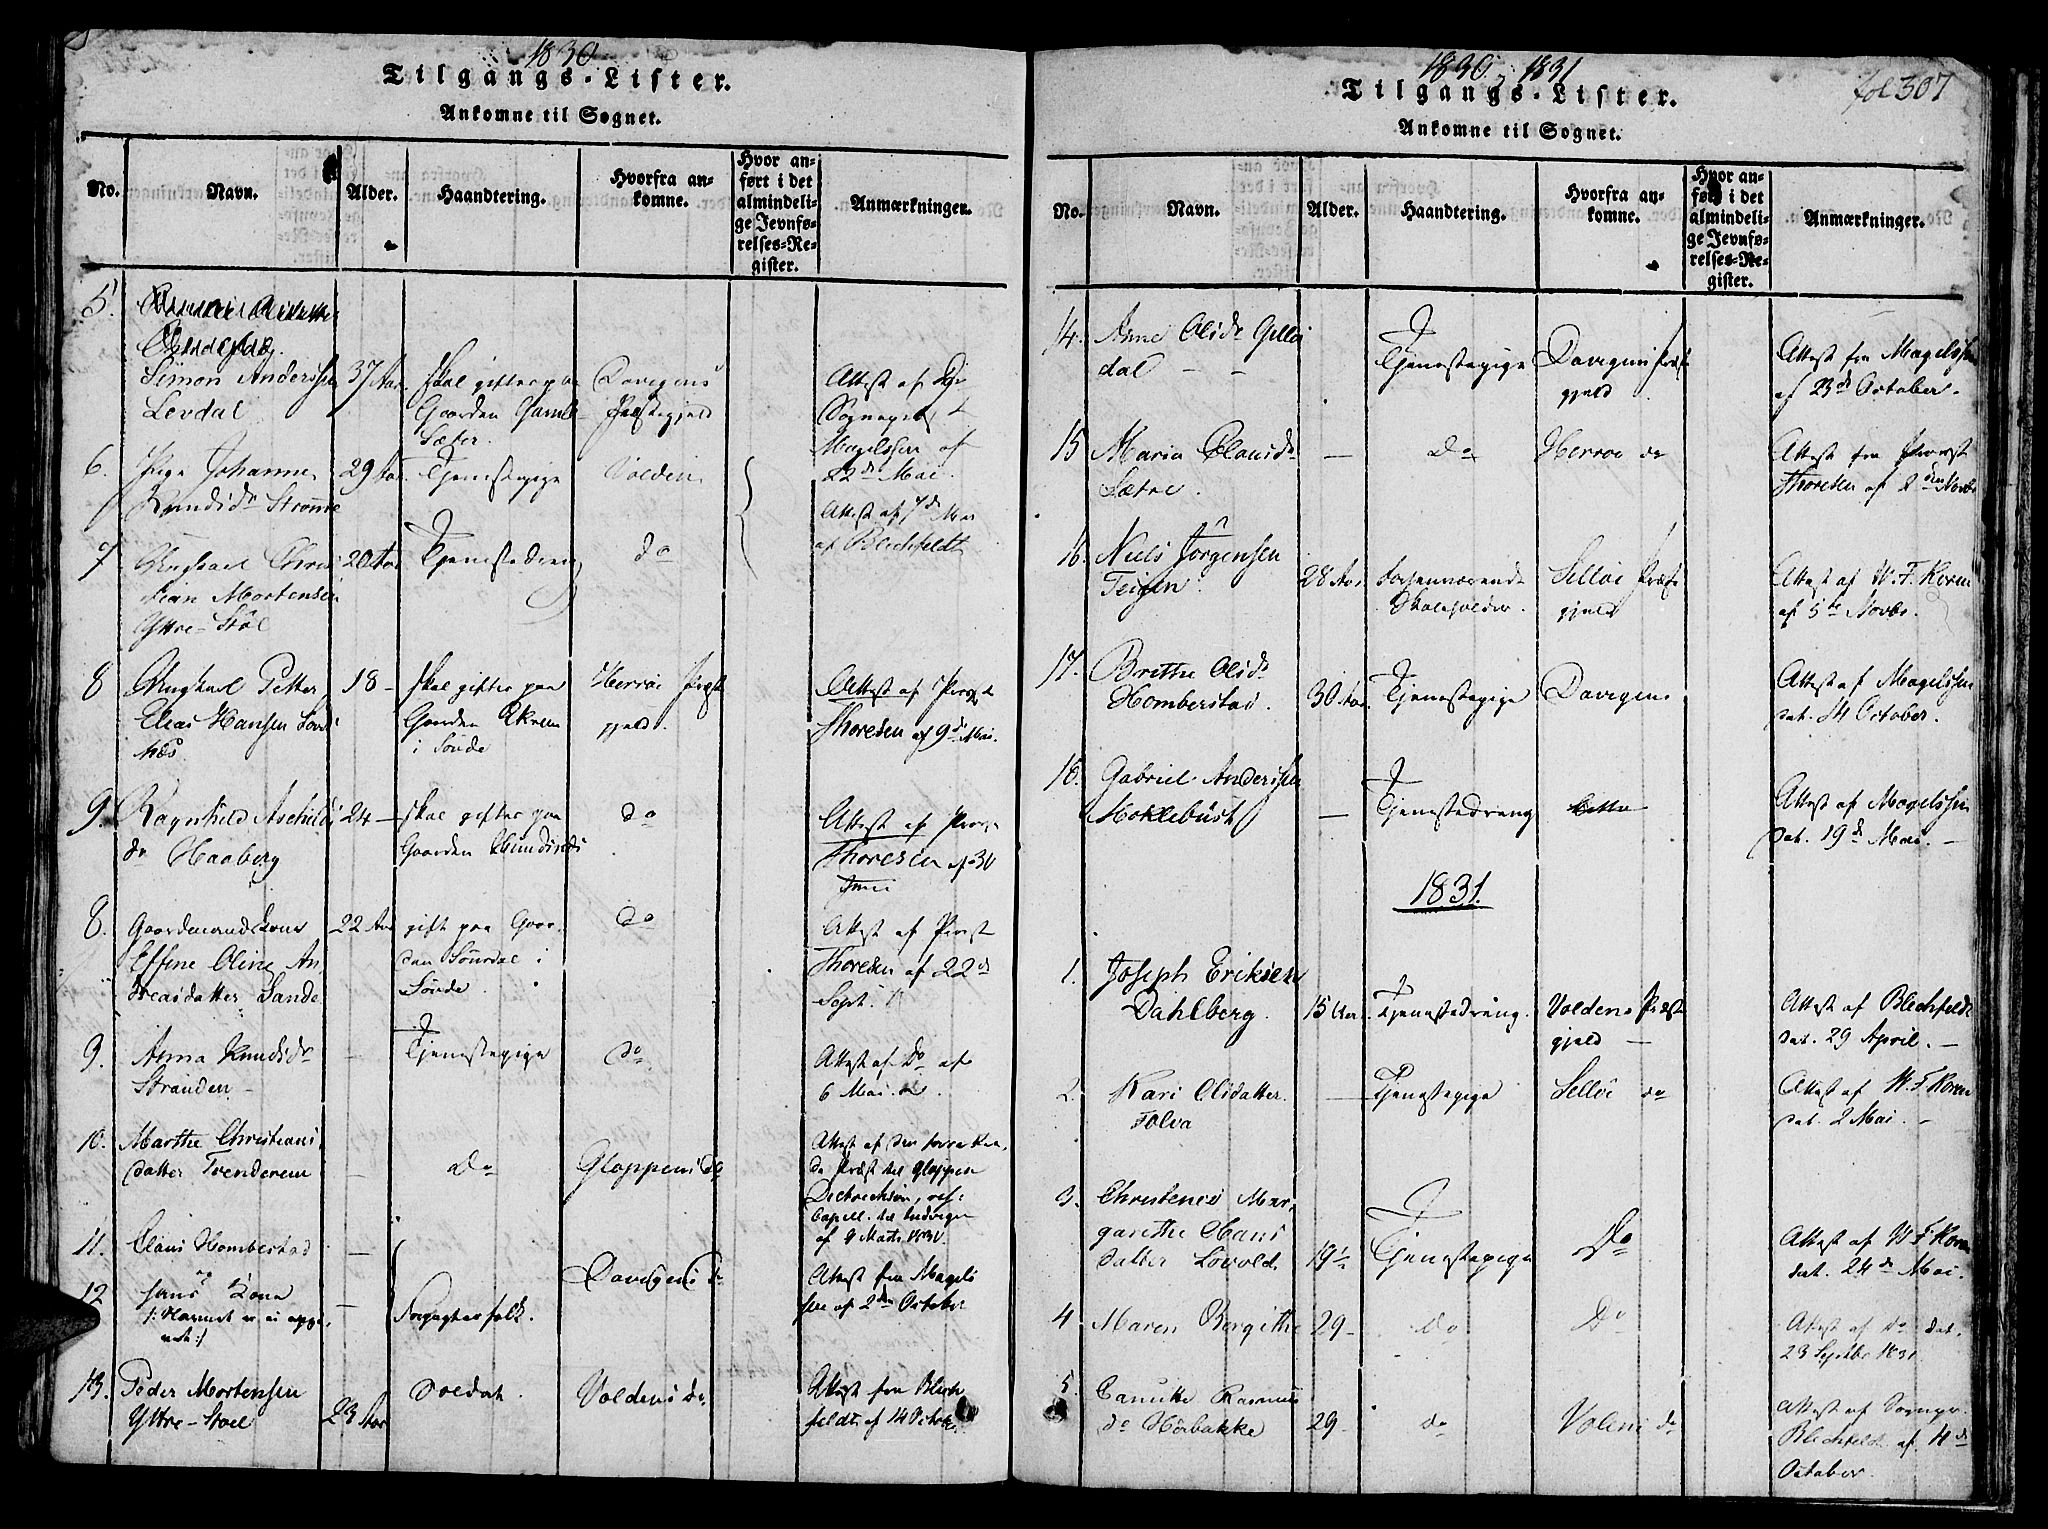 1830
Tilgangs-Lister.
Ankomne til Sognet.
No.
Navn.
Alder.
Haandtering.
Hvorfra an-
komne.
Hvor an-
ført i det
almindeli-
ge Jevnfø-
relses-Re-
gister.
Anmærkninger.
5.
Simon Anderssen
Levdal
37 Aar.
skal giftes paa
Gaarden
Sæter.
Davigens
Præstegjeld
Attest af
Sognepr.
Magelssen af
22de Mai.
6.
Johanne
Knudsdr Strømme
29 Aar
Tjenestepige
Volden
Attest af 7de Mai
af Blechfeldt
7.
Chri
stian Mortensen
Yttre-Støl
20 Aar
Tjenestedreng
do
8
Petter
Elias Hansen
næs
18 -
skal giftes paa
Gaarden
i Søvde
Herröe Præst
gjeld.
Attest af Provst
Thoresen af 9de Mai.
9.
Ragnhild Aschilds
dr Haaberg
24 -
skal giftes paa
Gaarden
do
Attest af Provst
Thoresen af 30
Juni
8.
Gaardmands Kone
Effine Oline An
dreasdatter Sande
22 Aar
gift paa Gaar-
den Søurdal i
Søvde.
do
Attest af Provst
Thoresen af 22de
Sept.
9.
Anna Knudsdr
Stranden -
-
Tjenestepige
do
Attest af Do af
6 Mai.
10.
Marthe Christians
datter
-
do
Gloppens do
Attest af den
Præst til Gloppen
Capell. til
af 9 Marts 1830.
11.
Claus Hombestad
-
12
og
hans Kone
/: Navnet er ei opgi-
vet :/
-
Forpagterfolk.
Davigens do
Attest fra Magels
sen af 2den October
13.
Peder Mortensen
Yttre-Stoel
23 Aar
Soldat.
Voldens do.
Attest fra Blech
feldt af 14 October
1830 1831
fol 307
Tilgangs-Lister.
Ankomne til Sognet.
No.
Navn.
Alder.
Haandtering.
Hvorfra an-
komne.
Hvor an-
ført i det
almindeli-
ge Jevnfø-
relses-Re-
gister.
Anmærkninger.
14.
Anne Olsdr
dal - -
Tjenestepige
Davigens Præste
gjeld.
Attest fra Magelssen
af 23de October.
15
Maria Clausdr
Sætre.
-
do
Herröe do
Attest fra Provst
Thoresen af 2den Novbr
16.
Niels Jørgensen
Teigen.
28 Aar
forhenværende
Skoleholder.
Selløe Præste
gjeld
Attest af W. F. Koren
af 5te Novbr.
17.
Brithe Olsdr
Homberstad.
30 Aar.
Tjenestepige
Davigens
Attest af Magelssen
dat. 14 October.
18.
Gabriel Anderssen
Moklebúst
-
Tjenestedreng
Attest af Magelssen
dat. 19de Mai. -
1831.
1.
Joseph Eriksen
Dahlberg.
15 Aar.
Tjenestedreng.
Voldens Præste
gjeld -
Attest af Blechfeldt
dat. 29 April. -
2.
Kari Olsdatter
Tolva
-
Tjenestepige
Selløe do
Attest af W. F. Koren
dat. 2 Mai. -
3.
Christense Mar-
garethe Hans
datter Lovold.
19½
Tjenestepige
Do
Attest af W F Koren
dat. 24de Mai.
4
Maren Bergithe
29 -
do
Do
Attest af Do dat.
23 Septbr 1831
5.
Canutte Rasmus
dr Hörbakke
29 -
do
Voldens do
Attest af Sognepr.
Blechfeldt af 4de
October.